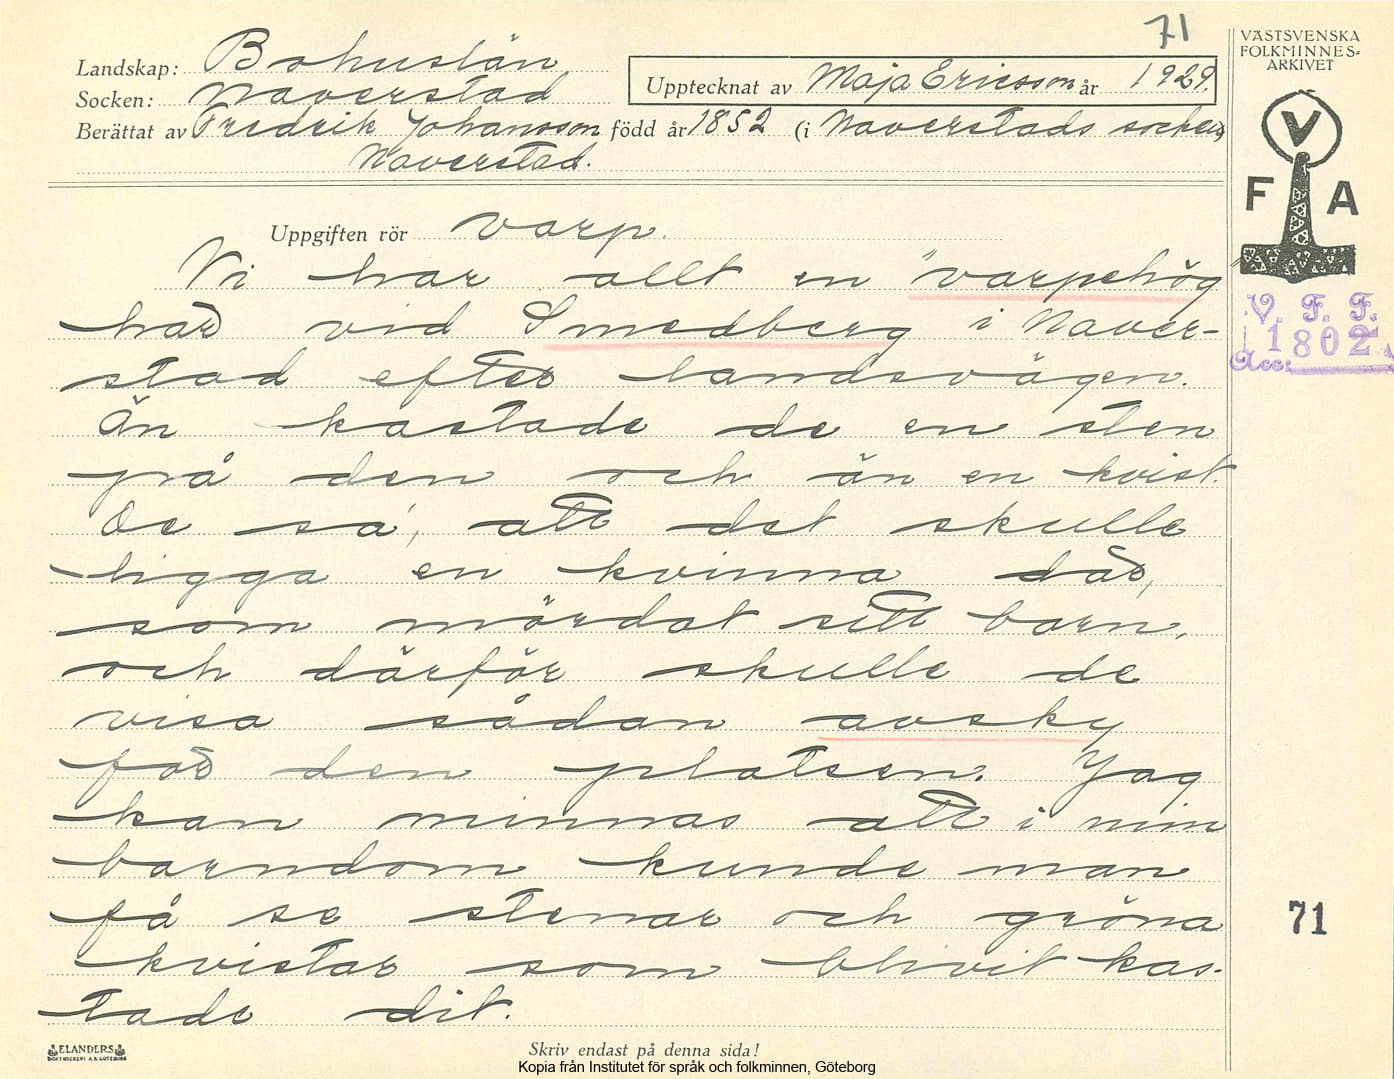 71
Landskap: Bohuslän
Socken: Naverstad
Upptecknat av Maja Ericsson år 1929.
Berättat av Fredrik Johansson född år 1852 (i Naverstads socken)
Naverstad.
VÄSTSVENSKA
FOLKMINNES-
ARKIVET
V
F A
V. F. F.
1802
Acc:
Uppgiften rör varp.
Vi har allt en "varpehög"
här vid Smedberg i Naver-
stad efter landsvägen.
Än kastade de en sten
på den och än en kvist.
De sa, att det skulle
ligga en kvinna där,
som mördat sitt barn,
och därför skulle de
visa sådan avsky
för den platsen. Jag
kan minnas att i min
barndom kunde man
få se stenar och gröna
kvistar som blivit kas-
tade dit.
71
ELANDERS
BOKTRYCKERI A.B. GÖTEBORG
Skriv endast på denna sida!
Kopia från Institutet för språk och folkminnen, Göteborg